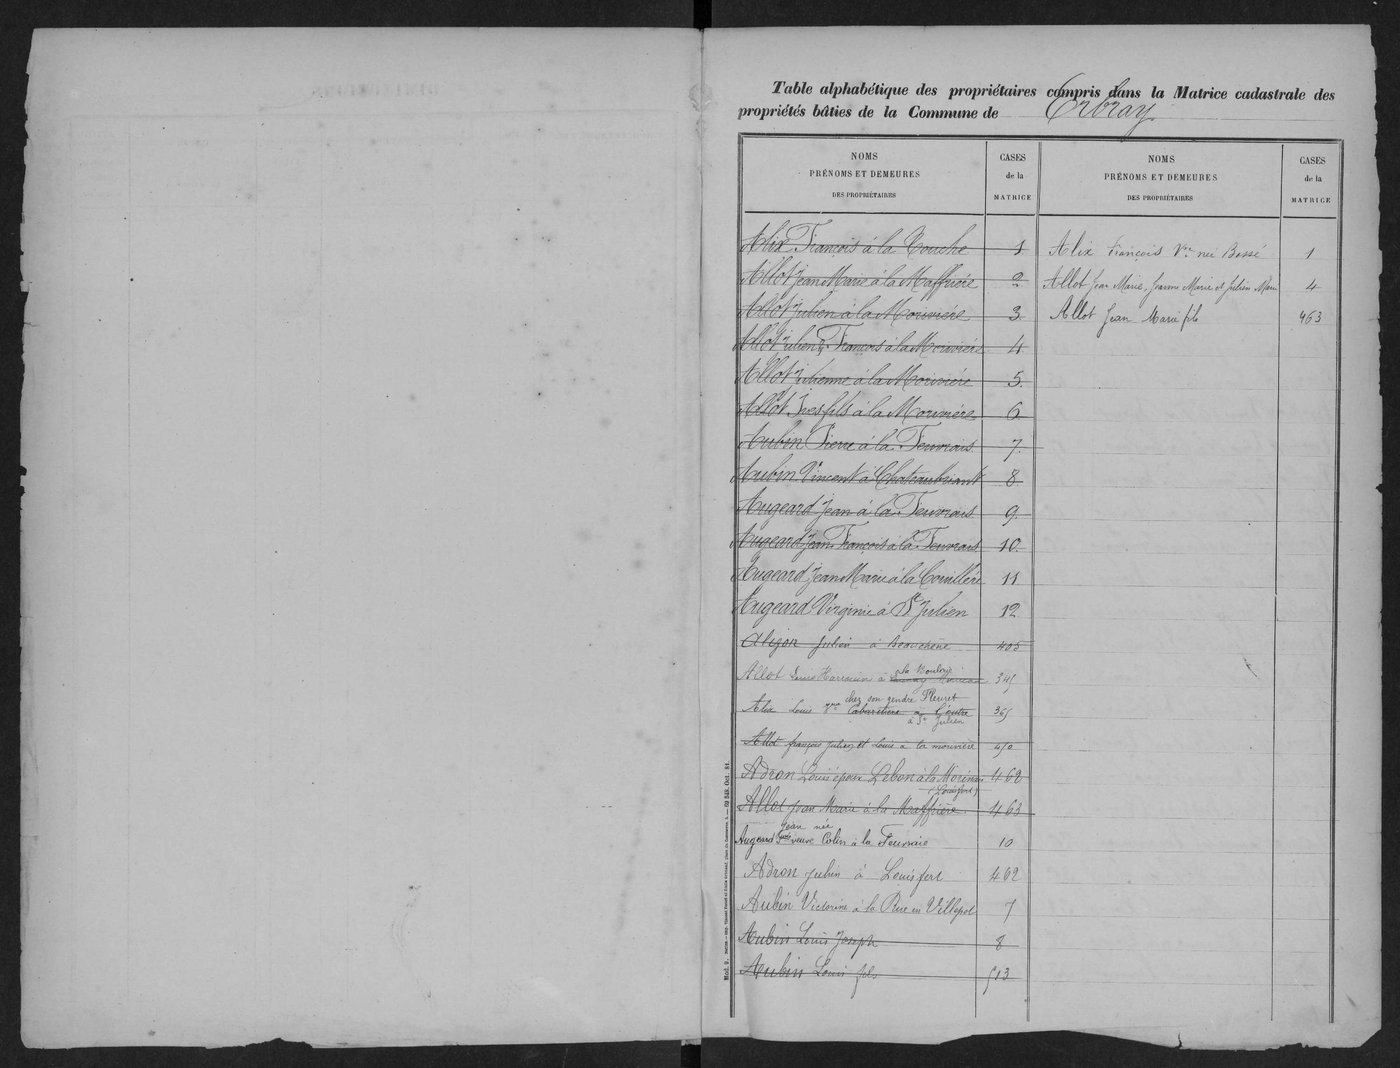 Table alphabétique des propriétaires compris dans la Matrice cadastrale des
propriétés bâties de la Commune de Erbray
NOMS
PRÉNOMS ET DEMEURES
DES PROPRIÉTAIRES
CASES
de la
MATRICE
Alix François à la Touche 1
Allot Jean Marie à la Maffrière 2
Allot Julien à la Morivière 3
Allot Julien François à la Morivière 4
Allot Julienne à la Morivière 5
Allot Yves fils à la Morivière 6
Aubin Pierre à la Feuvrais 7
Aubin Vincent à Chateaubriant 8
Augeard Jean à la Feuvrais 9
Augeard Jean François à la Feuvrais 10
Augeard Jean Marie à la 11
Augeard Virginie à St Julien 12
Alizon Julien à Beauchêne 405
la Boulay
Allot Louis à 345
chez son gendre Pleuret
Alix Louis 365
à St Julien
Allot françois Julien et Louis à la morivière 450
Adron Louis époux Lebon à la 462
(Louisfert)
Allot Jean Marie à la Maffrière 463
Jean née
Augeard veuve Colin à la Feuvraie 10
Adron Julien à Louisfert 462
Aubin Victorine à la Rue en Villepot 7
Aubin Louis Joseph 8
Aubin Louis fils 513
NOMS
PRÉNOMS ET DEMEURES
DES PROPRIÉTAIRES
CASES
de la
MATRICE
Alix François Vve née Bossé 1
Allot Jean Marie, Jeanne Marie et Julien Marie 4
Allot Jean Marie fils 463